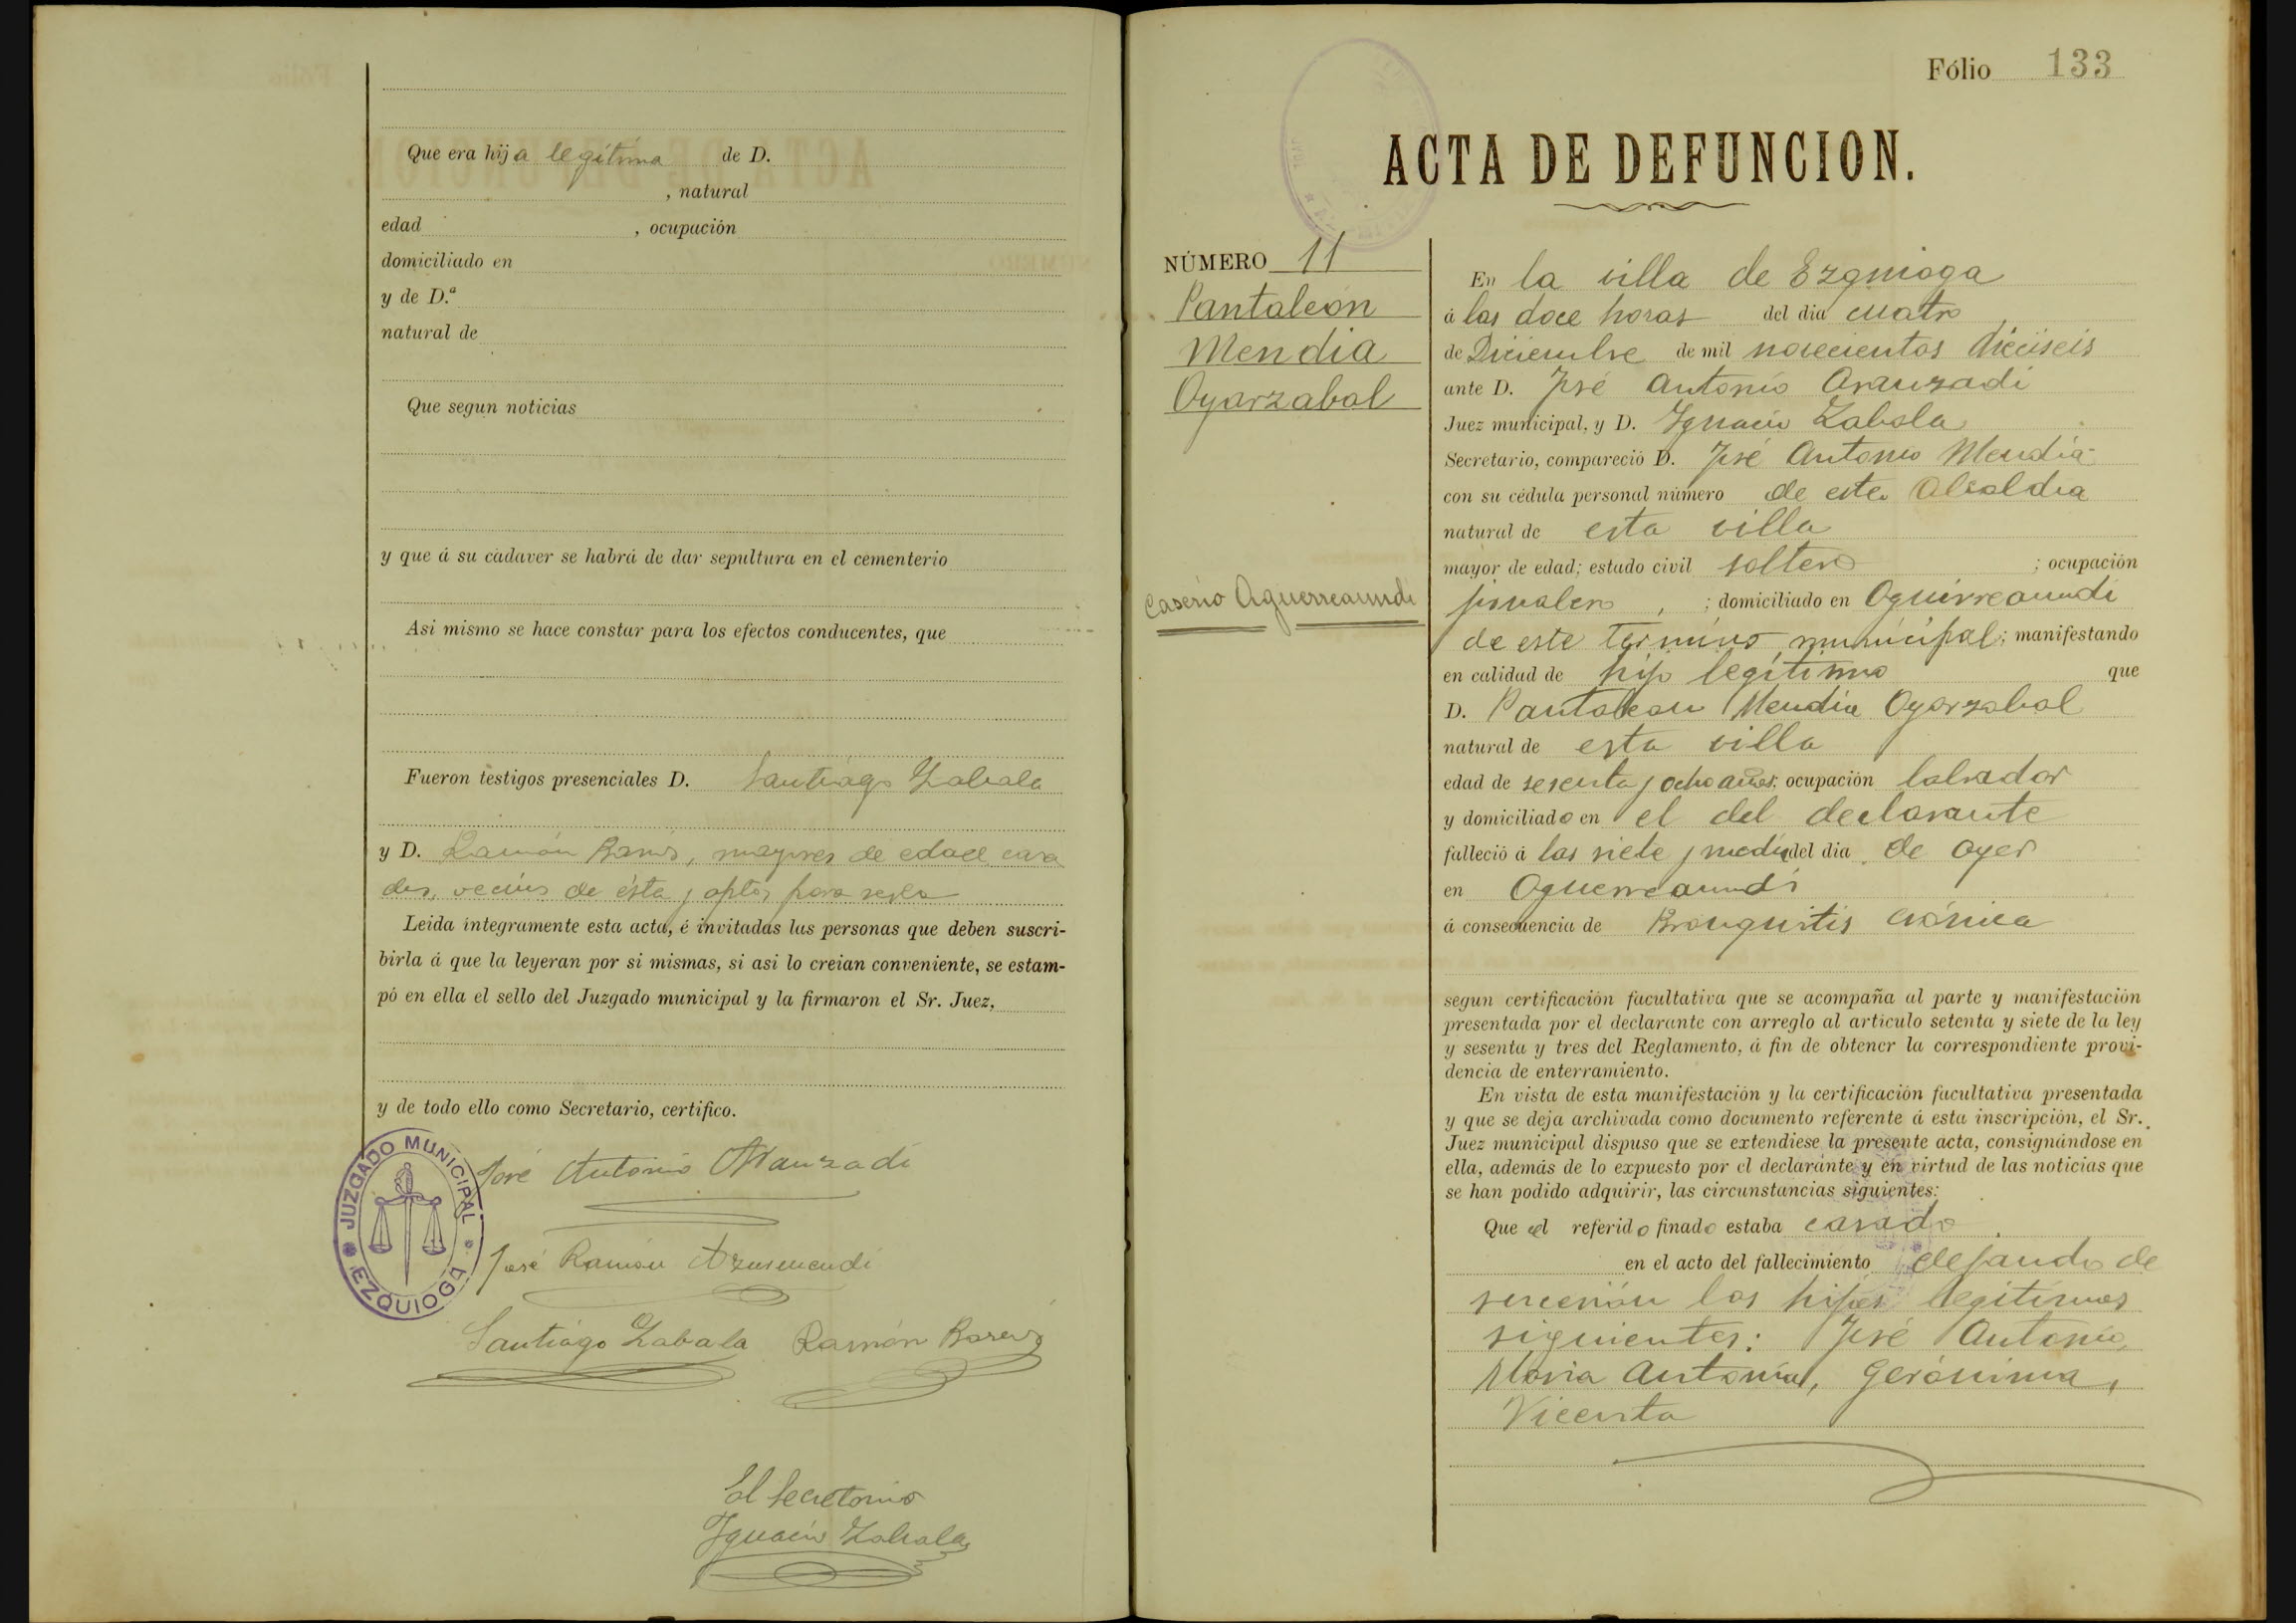 Que era hija legítima de D.
, natural
edad , ocupación
domiciliado en
y de D.ª
natural de
Que segun noticias
y que á su cadaver se habrá de dar sepultura en el cementerio
Asi mismo se hace constar para los efectos conducentes, que
Fueron testigos presenciales D. Santiago Zabala
y D. Ramón , mayores de edad casa
dos, vecinos de ésta y aptos para serlo
Leida íntegramente esta acta, é invitadas las personas que deben suscri-
birla á que la leyeran por si mismas, si asi lo creian conveniente, se estam-
pó en ella el sello del Juzgado municipal y la firmaron el Sr. Juez,
y de todo ello como Secretario, certifico.
JUZGADO MUNICIPAL
EZQUIOGA
José Antonio Aranzadi
José Ramón Azurmendi
Santiago Zabala Ramón
El Secretario
Ignacio Zabala
Fólio 133
ACTA DE DEFUNCION.
NÚMERO 11
Pantaleón
Mendia
Oyarzabal
Caserio Aguerreaundi
En la villa de Ezquioga
á las doce horas del dia cuatro
de Diciembre de mil novecientos dieciseis
ante D. José Antonio Aranzadi
Juez municipal, y D. Ignacio Zabala
Secretario, compareció D. José Antonio Mendia
con su cédula personal número de esta Alcaldia
natural de esta villa
mayor de edad; estado civil soltero ; ocupación
jornalero , ; domiciliado en Aguirreaundi
de este término municipal; manifestando
en calidad de hijo legítimo que
D. Pantaleon Mendia Oyarzabal
natural de esta villa
edad de sesenta y ocho años; ocupación labrador
y domiciliado en el del declarante
falleció á las siete y media del dia de ayer
en Aguerreaundi
á consecuencia de Bronquitis crónica
segun certificación facultativa que se acompaña al parte y manifestación
presentada por el declarante con arreglo al articulo setenta y siete de la ley
y sesenta y tres del Reglamento, á fin de obtener la correspondiente provi-
dencia de enterramiento.
En vista de esta manifestación y la certificación facultativa presentada
y que se deja archivada como documento referente á esta inscripción, el Sr.
Juez municipal dispuso que se extendiese la presente acta, consignándose en
ella, además de lo expuesto por el declarante y en virtud de las noticias que
se han podido adquirir, las circunstancias siguientes:
Que el referido finado estaba casado
en el acto del fallecimiento dejando de
sucesión los hijos legítimos
siguientes: José Antonio,
Maria Antonia, Gerónima,
Vicenta